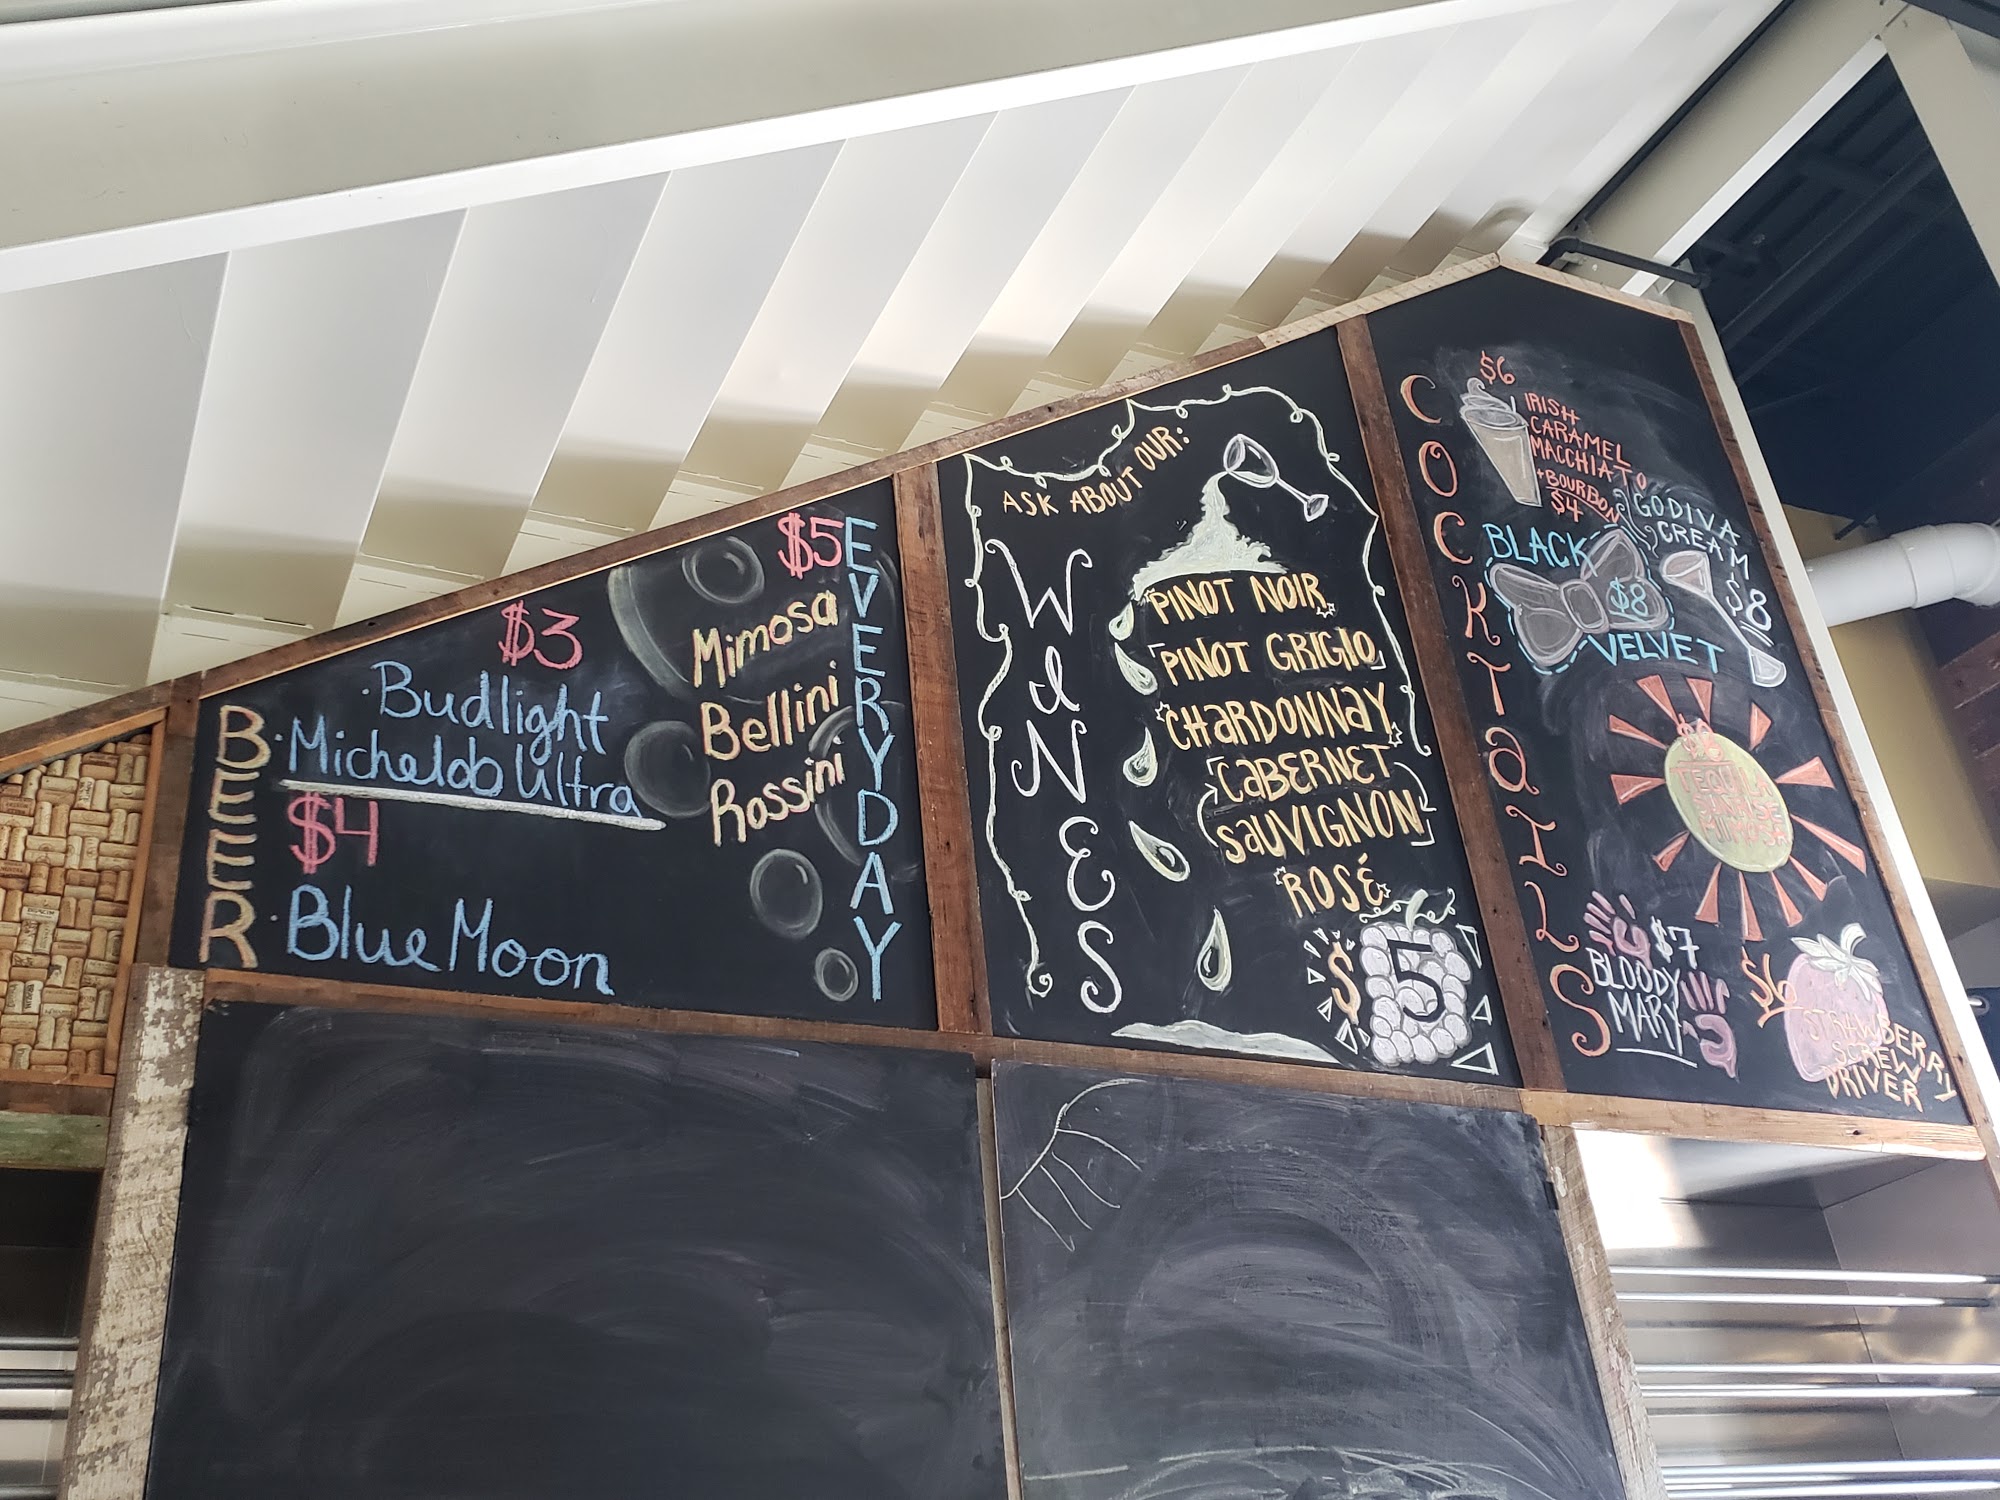 BEER
$3
·Budlight
·Micheldob Ultra
$4
·Blue Moon
$5
EVERYDAY
Mimosa
Bellini
Rossini
ASK ABOUT OUR:
WiNES
PINOT NOIR
PINOT GRIGIO
CHARDONNAY
CABERNET
SAUVIGNON
ROSÉ
$5
COCKTAILS
$6
IRISH
CARAMEL
MACCHIATO
+BOURBON
$4
GODIVA
CREAM
$8
BLACK
$8
VELVET
$6
TEQUILA
SUNRISE
MIMOSA
$7
BLOODY
MARY
$6
STRAWBERRY
SCREW
DRIVER